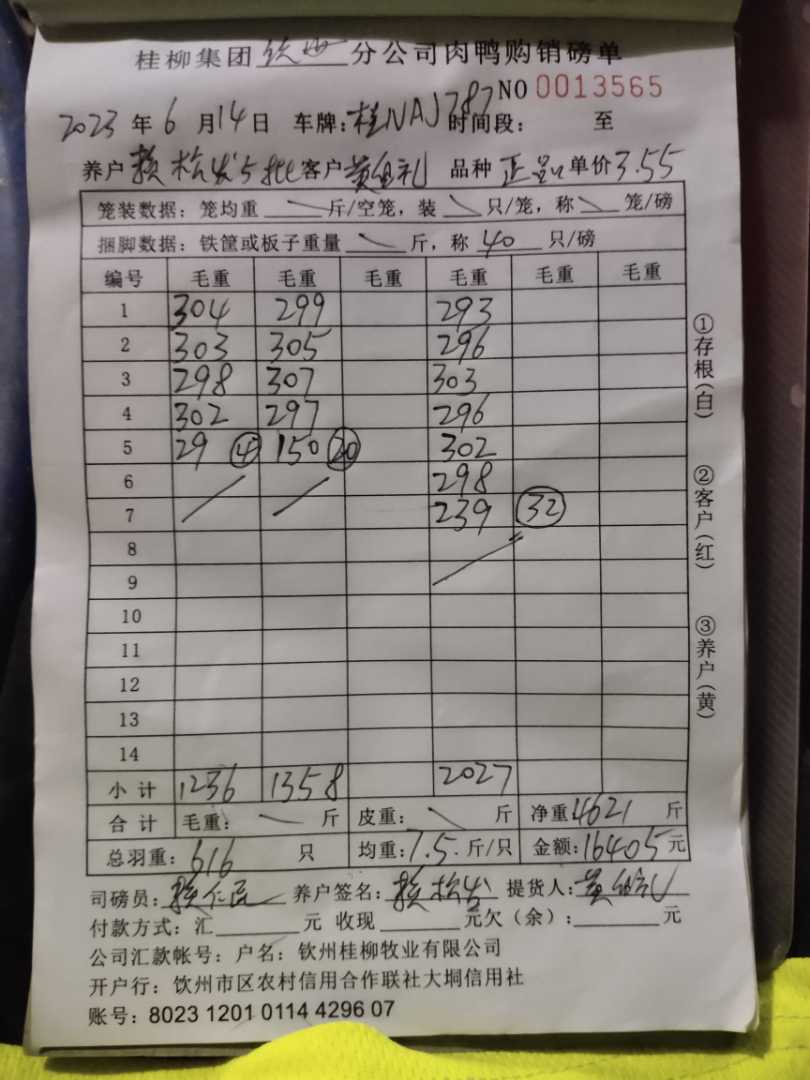 桂柳集团 钦州 分公司肉鸭购销磅单
NO 0013565
2023 年 6 月 14 日 车牌: 桂NAJ787 时间段: 至
养户 赖松发5批 客户 黄 礼 品种 正品 单价 3.55
笼装数据: 笼均重 斤/空笼, 装 只/笼, 称 笼/磅
捆脚数据: 铁筐或板子重量 斤, 称 40 只/磅
编号 毛重 毛重 毛重 毛重 毛重 毛重
1 304 299 293
2 303 305 296
3 298 307 303
4 302 297 296
5 29 ④ 150 ⑳ 302
6 298
7 239 ㉜
8
9
10
11
12
13
14
小计 1236 1358 2027
合计 毛重: 斤 皮重: 斤 净重 4621 斤
总羽重: 616 只 均重: 7.5 斤/只 金额: 16405 元
司磅员: 赖仁民 养户签名: 赖松发 提货人: 黄 礼
付款方式: 汇 元 收现 元欠(余): 元
公司汇款帐号: 户名: 钦州桂柳牧业有限公司
开户行: 饮州市区农村信用合作联社大垌信用社
账号: 8023 1201 0114 4296 07
①存根(白)
②客户(红)
③养户(黄)